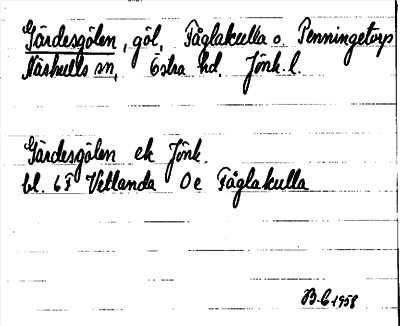 Gärdesgölen, göl, Fåglakulla o. Penningetorp
Näshults sn, Östra hd. Jönk. l.
Gärdesgölen ek Jönk.
bl. 6 F Vetlanda Oe Fåglakulla
B.E 1958